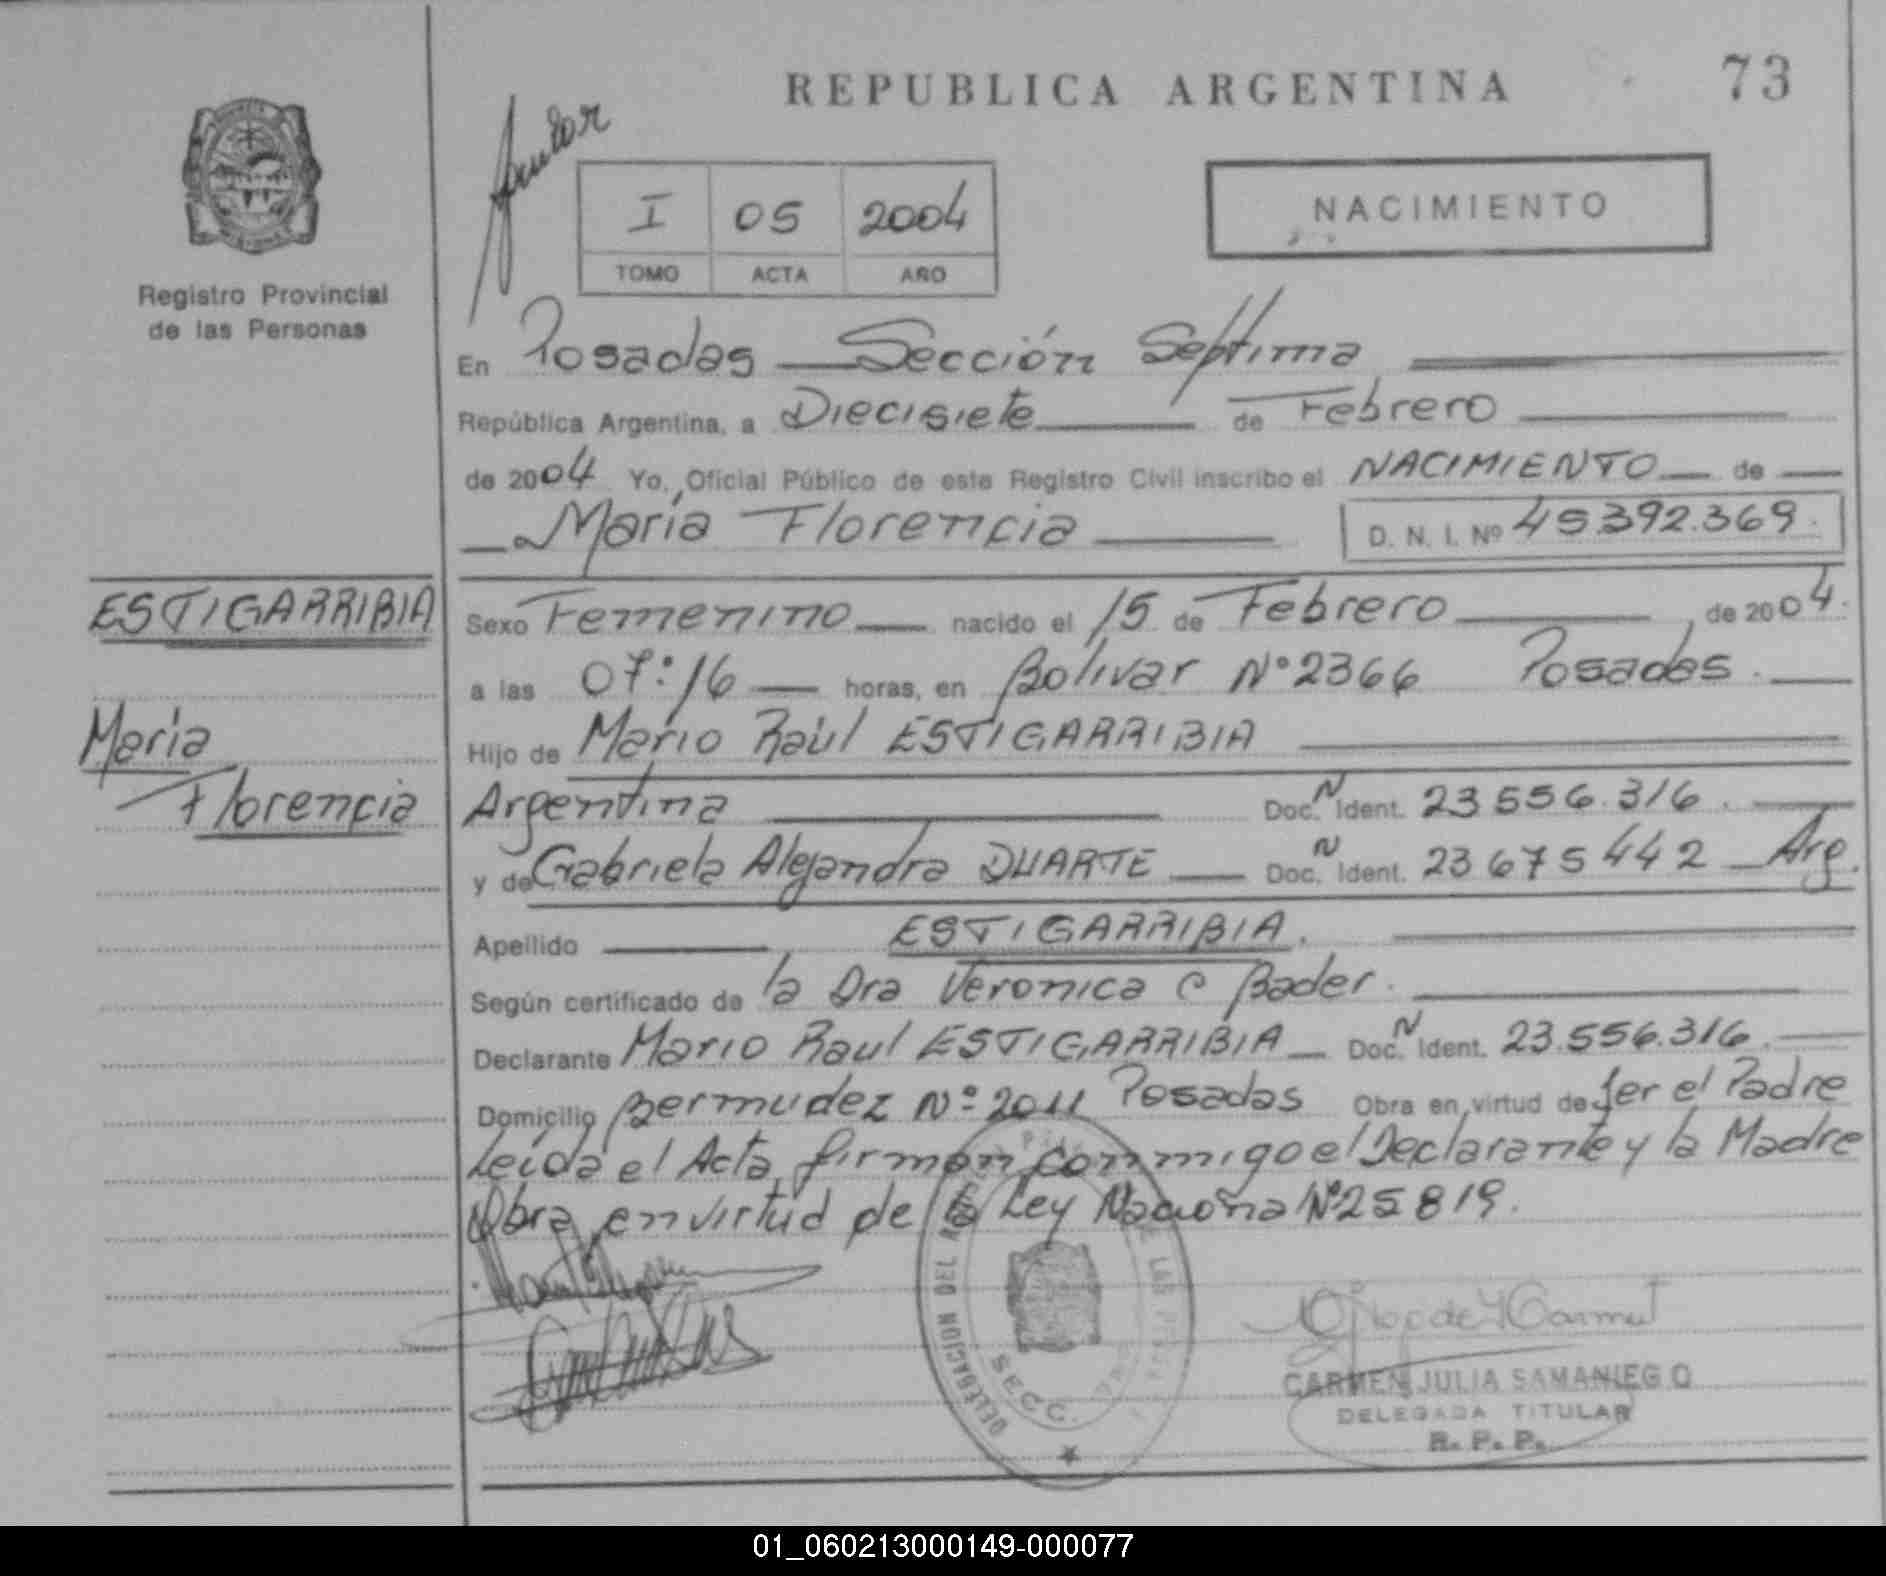 REPUBLICA ARGENTINA
73
I 05 2004
TOMO ACTA AÑO
NACIMIENTO
Registro Provincial
de las Personas
En Posadas Sección Séptima
República Argentina, a Diecisiete de Febrero
de 2004 Yo, Oficial Público de este Registro Civil inscribo el NACIMIENTO de
María Florencia D. N. I. Nº 45.392.369.
ESTIGARRIBIA
María
Florencia
Sexo Femenino nacido el 15 de Febrero de 2004.
a las 07:16 horas, en Bolivar Nº 2366 Posadas.
Hijo de Mario Raúl ESTIGARRIBIA
Argentina Doc. N Ident. 23 556.316.
y de Gabriela Alejandra DUARTE Doc. N Ident. 23 675 442 Arg.
Apellido ESTIGARRIBIA.
Según certificado de la Dra Veronica C Bader.
Declarante Mario Raul ESTIGARRIBIA Doc. N Ident. 23.556.316.
Domicilio Bermudez Nº 2011 Posadas Obra en virtud de Ser el Padre
Leída el Acta, firman conmigo el Declarante y la Madre
Obra en virtud de la Ley Naciona Nº 25819.
DELEGACION DEL
DE LAS
SECC.
CARMEN JULIA SAMANIEGO
DELEGADA TITULAR
R. P. P.
01_060213000149-000077